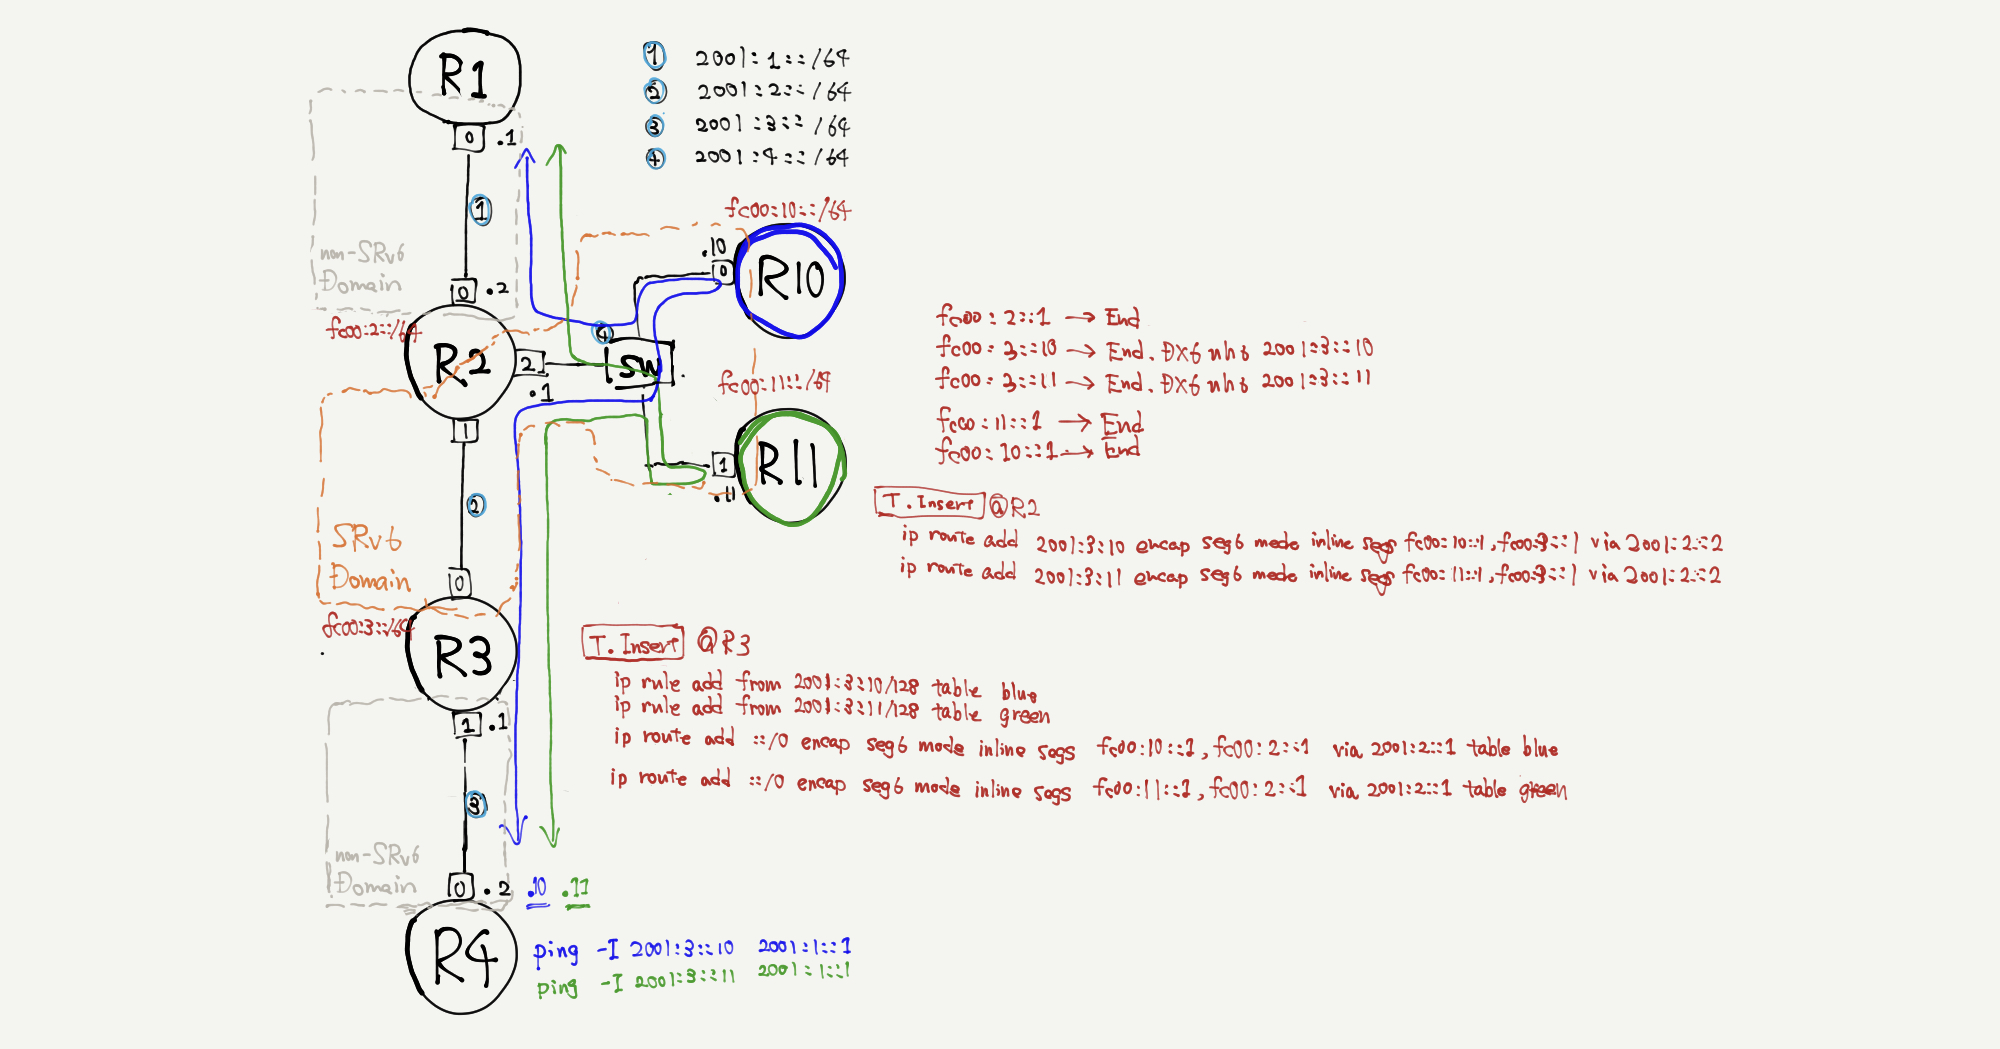 R1
0 .1
1
non-SRv6
Domain
0 .2
fc00:2::/64
R2
2
.1
1
2
SRv6
Domain
0
fc00:3::/64
R3
1 .1
3
non-SRv6
Domain
0 .2 .10 .11
R4
ping -I 2001:3::10 2001:1::1
ping -I 2001:3::11 2001:1::1
1 2001:1::/64
2 2001:2::/64
3 2001:3::/64
4 2001:4::/64
fc00:10::/64
.10
0
R10
4
SW
fc00:11::/64
1
.11
R11
fc00:2::1 → End
fc00:3::10 → End.DX6 nh6 2001:3::10
fc00:3::11 → End.DX6 nh6 2001:3::11
fc00:11::1 → End
fc00:10::1 → End
T.Insert @R2
ip route add 2001:3:10 encap seg6 mode inline segs fc00:10::1,fc00:3::1 via 2001:2::2
ip route add 2001:3:11 encap seg6 mode inline segs fc00:11::1,fc00:3::1 via 2001:2::2
T.Insert @R3
ip rule add from 2001:3:10/128 table blue
ip rule add from 2001:3:11/128 table green
ip route add ::/0 encap seg6 mode inline segs fc00:10::1,fc00:2::1 via 2001:2::1 table blue
ip route add ::/0 encap seg6 mode inline segs fc00:11::1,fc00:2::1 via 2001:2::1 table green